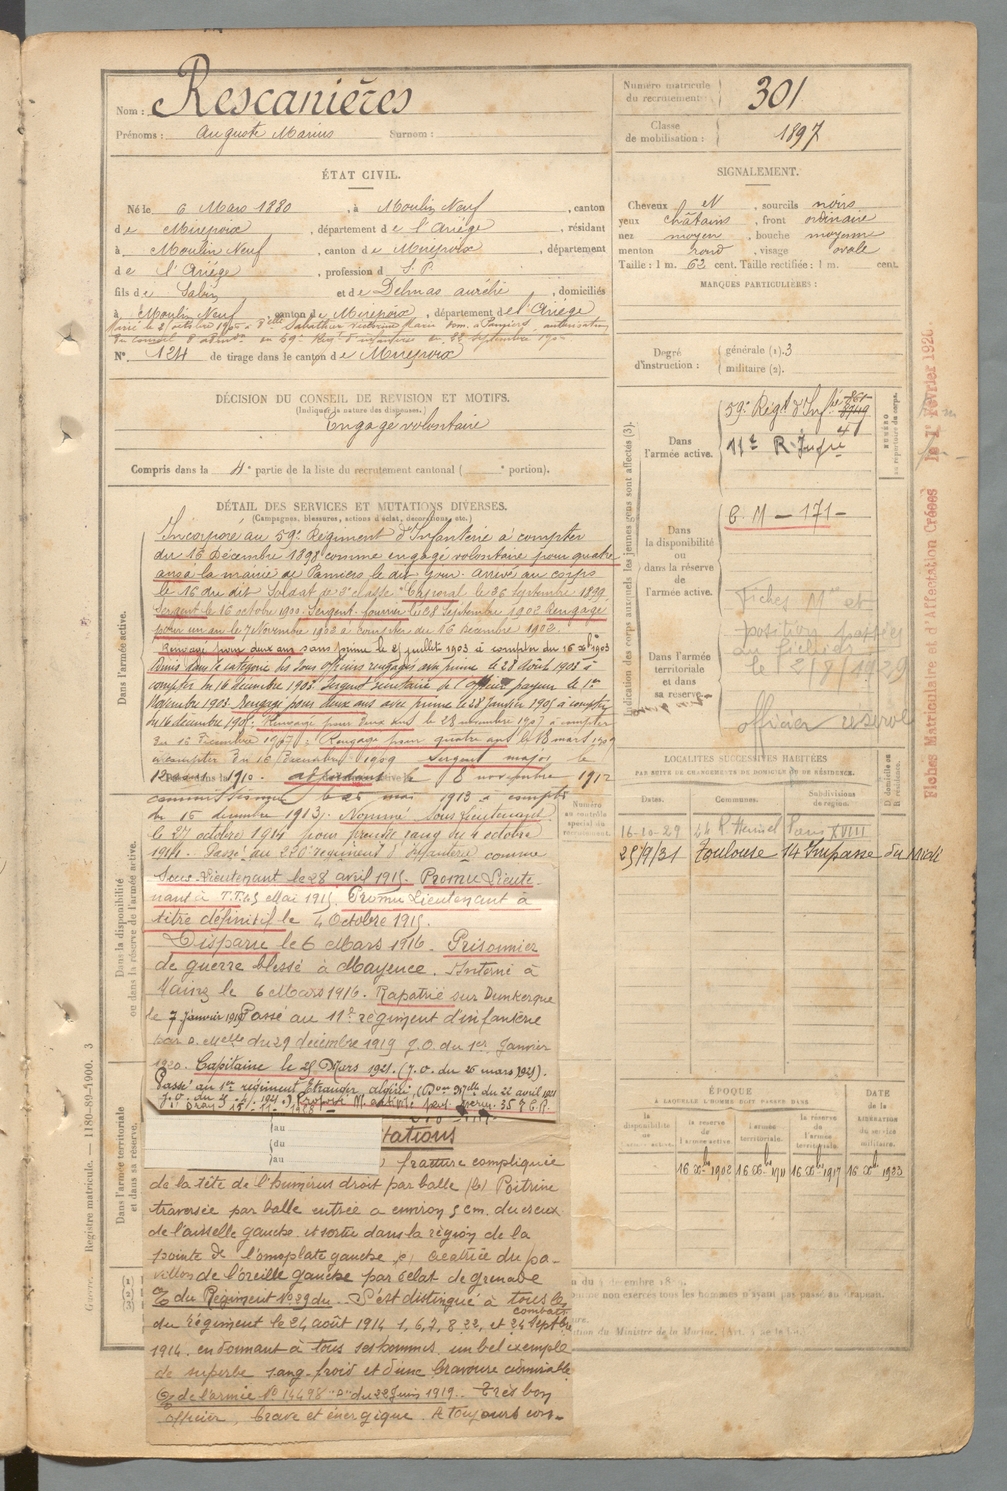 Nom : Rescanières
Prénoms : Auguste Marius Surnom :
Numéro matricule du recrutement : 301
Classe de mobilisation : 1897
ÉTAT CIVIL.
Né le 6 Mars 1880, à Moulin Neuf, canton
de Mirepoix, département de l'Ariège, résidant
à Moulin Neuf, canton de Mirepoix, département
de l'Ariège, profession d S.P.
fils de Sabin et de Delmas Aurélie, domiciliés
à Moulin Neuf, canton de Mirepoix, département de l'Ariège
N° 124 de tirage dans le canton de Mirepoix
SIGNALEMENT.
Cheveux N, sourcils noirs
yeux châtains, front ordinaire
nez moyen, bouche moyenne
menton rond, visage ovale
Taille : 1 m. 62 cent. Taille rectifiée : 1 m. cent.
MARQUES PARTICULIÈRES :
Degré d'instruction : générale (1). 3
militaire (2).
DÉCISION DU CONSEIL DE REVISION ET MOTIFS.
(Indiquer la nature des dispenses.)
Engagé volontaire
Compris dans la 4e partie de la liste du recrutement cantonal ( e portion).
DÉTAIL DES SERVICES ET MUTATIONS DIVERSES.
(Campagnes, blessures, actions d'éclat, décorations, etc.)
Dans l'armée active.
Incorporé au 59e Régiment d'Infanterie à compter
du 16 Décembre 1898 comme engagé volontaire pour quatre
ans à la mairie de Pamiers le dit jour. Arrivé au corps
le 16 du dit Soldat de 2e classe. Caporal le 26 septembre 1899
Sergent le 16 octobre 1900. Sergent fourrier le 28 Septembre 1902 Rengagé
pour un an le 7 Novembre 1902 à compter du 16 Décembre 1902.
Rengagé pour deux ans sans prime le 21 juillet 1903 à compter du 16 Xbre 1903
Admis dans la catégorie des Sous officiers rengagés avec prime le 28 Août 1903 à
compter du 16 décembre 1903. Sergent secrétaire de l'officier payeur le 1er
Novembre 1903. Rengagé pour deux ans avec prime le 28 Janvier 1905 à compter
du 16 décembre 1905. Rengagé pour deux ans le 23 novembre 1907 à compter
du 16 Décembre 1907. Rengagé pour quatre ans le 18 mars 1909
à compter du 16 Décembre 1909 Sergent major le
1910. adjudant le 8 novembre 1912
commissionné le 25 mai 1913 à compter
du 16 décembre 1913. Nommé Sous Lieutenant
le 27 octobre 1914 pour prendre rang du 4 octobre
1914. Passé au 220e régiment d'infanterie comme
Sous-Lieutenant le 28 avril 1915. Promu Lieute-
nant à T.T. le 5 Mai 1915. Promu Lieutenant à
titre définitif le 4 Octobre 1915.
Disparu le 6 Mars 1916. Prisonnier
de guerre blessé à Mayence. Interné à
le 6 Mars 1916. Rapatrié sur Dunkerque
le 7 janvier 1919 Passé au 11e régiment d'infanterie
par d. melle du 29 décembre 1919 J.O. du 1er Janvier
1920. Capitaine le 25 Mars 1921. (J.O. du 26 mars 1921).
Passé au 1er régiment Etranger algérie (Don Mlle du 22 avril 1921
au
du
au
tations
fracture compliquée
de la tête de l'humérus droit par balle (b) Poitrine
traversée par balle entrée a environ 5 cm. du creux
de l'aisselle gauche et sortie dans la région de la
pointe de l'omoplate gauche c) Cicatrice du pa-
villon de l'oreille gauche par éclat de grenade
du Régiment No 29 du S'est distingué à tous les
combats
du régiment le 24 août 1914 1, 6, 7, 8 22, et 24 Septbre
1914. en donnant à tous ses hommes un bel exemple
de superbe sang-froid et d'une bravoure admirable
de l'armée No 14498 "D" du 22 Juin 1919. Très bon
officier, brave et énergique. A toujours con-
Dans la disponibilité ou dans la réserve de l'armée active.
Dans l'armée territoriale et dans sa réserve.
Indication des corps auxquels les jeunes gens sont affectés (3).
Dans l'armée active.
59e Régt d'Infie
11e R. Infie 41
NUMÉRO au répertoire du corps.
Dans la disponibilité ou dans la réserve de l'armée active.
C. M - 171 -
Dans l'armée territoriale et dans sa réserve.
Fiches Mles et
position passées
au fichier
le 2/8/1929
officier réserve
Fiches Matriculaire et d'Affectation Créées le 1er Février 1926.
LOCALITÉS SUCCESSIVES HABITÉES
PAR SUITE DE CHANGEMENTS DE DOMICILE OU DE RÉSIDENCE.
Numéro au contrôle spécial du recrutement.
Dates. Communes. Subdivisions de région. D. domicile ou R. résidence.
16-10-29 Paris XVIII
25/9/31 Toulouse 14 Impasse du Midi
ÉPOQUE
À LAQUELLE L'HOMME DOIT PASSER DANS
DATE de la LIBÉRATION du service militaire.
la disponibilité de l'armée active. la réserve de l'armée active. l'armée territoriale. la réserve de l'armée territoriale.
16 Xbre 1902 16 Xbre 1911 16 Xbre 1917 16 Xbre 1923
Registre matricule. — 1180-89-1900. 3